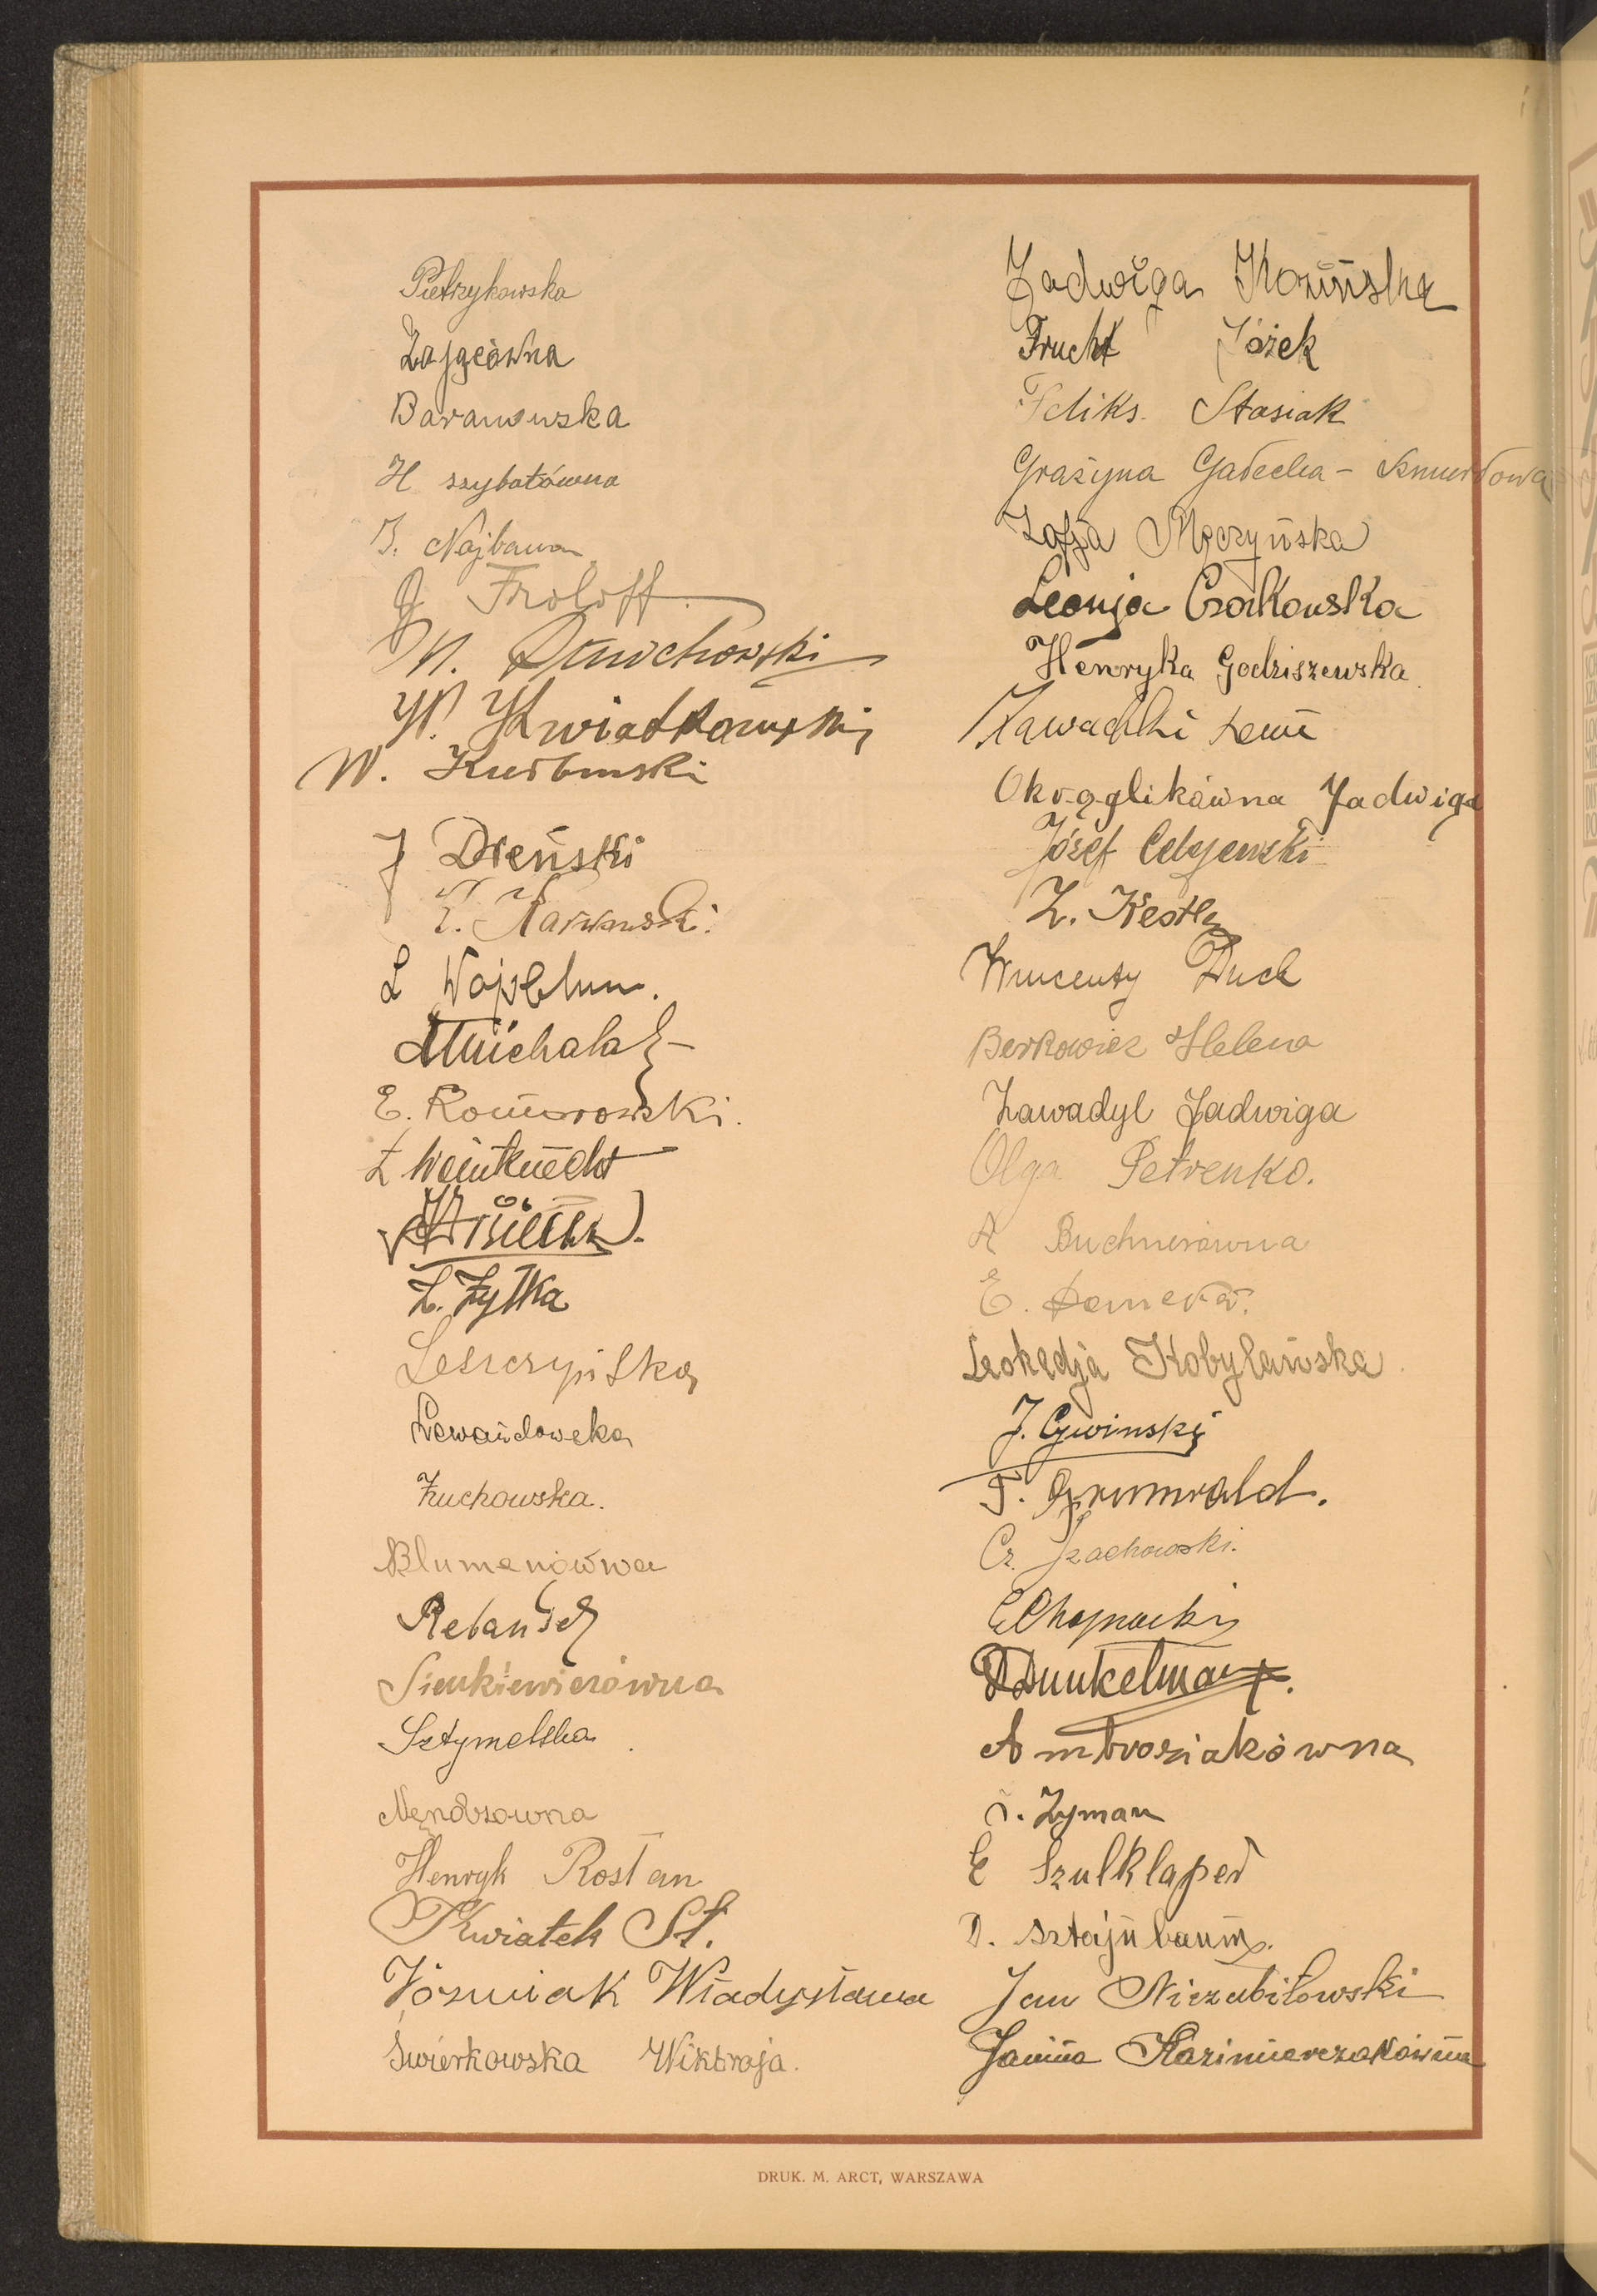 Pietrzykowska
Zajgcówna
Baranowska
H szybotówna
J. Najbawa
J Froloff
M.
W. Kwiatkowski
W.
J Dreński
L
Michalak
E. Komorowski.
Ł Weintknecht
Z. Żytka
Leszczyńska
Lewandowska
Żuchowska.
Blumenówna
Sienkiewiczówna
Sztymelska
Nendzowna
Henryk Rostan
Kwiatek St.
Józwiak Władysława
Świerkowska Wiktorja.
Jadwiga Kozińska
Frucht Józek
Feliks. Stasiak
Grażyna Gałecka - Szmurłowa
Zofja Męczyńska
Leonja Czarkowska
Henryka Godziszewska
Zawadzki
Okrąglikówna Jadwiga
Józef Celejewski
Z.
Wincenty Duck
Berkowicz Helena
Zawadyl Jadwiga
Olga Petrenko.
A Buchnerówna
E.
Leokadja Kobylańska
J. Cywinski
T. Grunwald.
Cz. Szachowski.
E Chojnacki
Dunkelman.
Ambroziakówna
Zyman
E Szulklaper
D. Sztajnbaum.
Jan Niezabitowski
Janina Kazimierczakówna
DRUK. M. ARCT, WARSZAWA